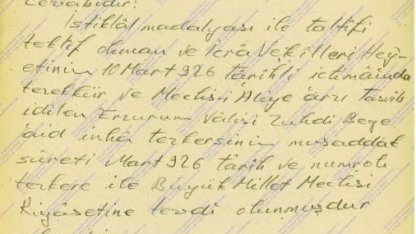 cevabıdır:
İstiklâl madalyası ile taltifi
teklif olunan ve İcrâ Vekilleri Hey-
etinin 10 Mart 926 tarihli ictimâında
tezekkür ve Meclis-i Âliye arzı tasvîb
idilen Erzurum Vâlisi Zühdi Beye
âid inhâ tezkersinin musaddak
sûreti Mart 926 târih ve numrolu
tezkere ile Büyük Millet Meclisi
Riyâsetine tevdi olunmuşdur